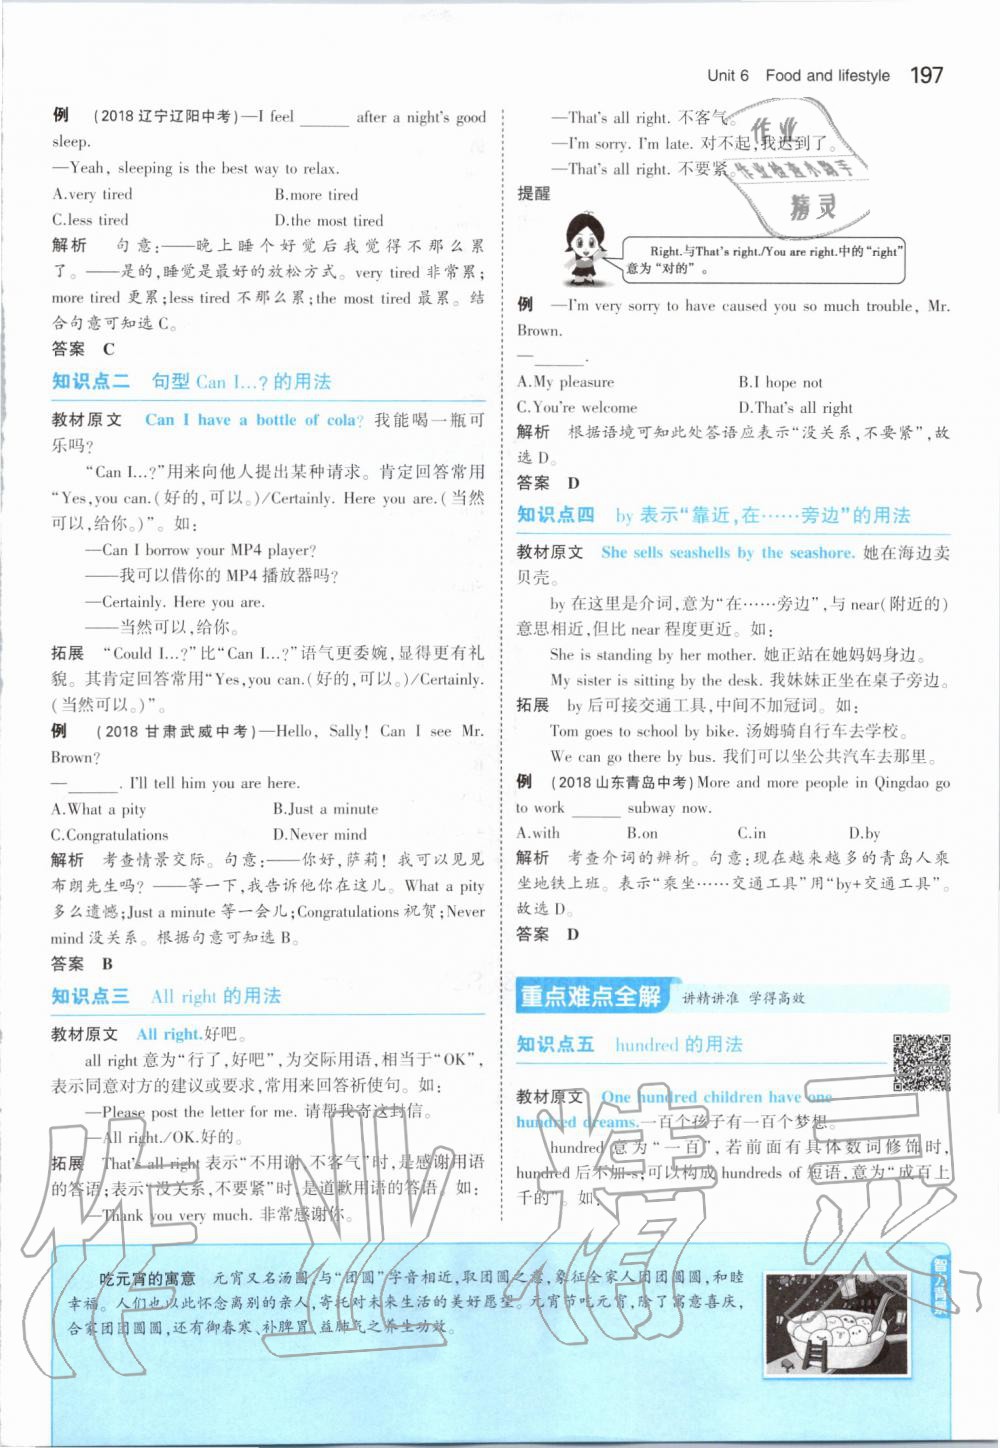 Unit 6 Food and lifestyle 197
例 (2018辽宁辽阳中考)—I feel ______ after a night's good
sleep.
—Yeah, sleeping is the best way to relax.
A.very tired B.more tired
C.less tired D.the most tired
解析 句意:——晚上睡个好觉后我觉得不那么累
了。——是的,睡觉是最好的放松方式。very tired 非常累;
more tired 更累;less tired 不那么累;the most tired 最累。结
合句意可知选C。
答案 C
知识点二 句型 Can I…?的用法
教材原文 Can I have a bottle of cola? 我能喝一瓶可
乐吗?
“Can I…?”用来向他人提出某种请求。肯定回答常用
“Yes,you can.(好的,可以。)/Certainly. Here you are.(当然
可以,给你。)”。如:
—Can I borrow your MP4 player?
——我可以借你的 MP4 播放器吗?
—Certainly. Here you are.
——当然可以,给你。
拓展 “Could I…?”比“Can I…?”语气更委婉,显得更有礼
貌。其肯定回答常用“Yes,you can.(好的,可以。)/Certainly.
(当然可以。)”。
例 (2018甘肃武威中考)—Hello, Sally! Can I see Mr.
Brown?
—______. I'll tell him you are here.
A.What a pity B.Just a minute
C.Congratulations D.Never mind
解析 考查情景交际。句意:——你好,萨莉!我可以见见
布朗先生吗?——等一下,我告诉他你在这儿。What a pity
多么遗憾;Just a minute 等一会儿;Congratulations 祝贺;Never
mind 没关系。根据句意可知选B。
答案 B
知识点三 All right 的用法
教材原文 All right.好吧。
all right 意为“行了,好吧”,为交际用语,相当于“OK”,
表示同意对方的建议或要求,常用来回答祈使句。如:
—Please post the letter for me. 请帮我寄这封信。
—All right./OK.好的。
拓展 That's all right 表示“不用谢,不客气”时,是感谢用语
的答语;表示“没关系,不要紧”时,是道歉用语的答语。如:
—Thank you very much. 非常感谢你。
—That's all right. 不客气。
—I'm sorry. I'm late. 对不起,我迟到了。
—That's all right. 不要紧。
提醒
Right.与That's right./You are right.中的“right”
意为“对的”。
例 —I'm very sorry to have caused you so much trouble, Mr.
Brown.
—______.
A.My pleasure B.I hope not
C.You're welcome D.That's all right
解析 根据语境可知此处答语应表示“没关系,不要紧”,故
选D。
答案 D
知识点四 by 表示“靠近,在……旁边”的用法
教材原文 She sells seashells by the seashore. 她在海边卖
贝壳。
by 在这里是介词,意为“在……旁边”,与 near(附近的)
意思相近,但比 near 程度更近。如:
She is standing by her mother. 她正站在她妈妈身边。
My sister is sitting by the desk. 我妹妹正坐在桌子旁边。
拓展 by 后可接交通工具,中间不加冠词。如:
Tom goes to school by bike. 汤姆骑自行车去学校。
We can go there by bus. 我们可以坐公共汽车去那里。
例 (2018山东青岛中考)More and more people in Qingdao go
to work ______ subway now.
A.with B.on C.in D.by
解析 考查介词的辨析。句意:现在越来越多的青岛人乘
坐地铁上班。表示“乘坐……交通工具”用“by+交通工具”。
故选D。
答案 D
重点难点全解 讲精讲准 学得高效
知识点五 hundred 的用法
教材原文 One hundred children have one
hundred dreams.一百个孩子有一百个梦想。
hundred 意为“一百”,若前面有具体数词修饰时,
hundred 后不加-s;可以构成 hundreds of 短语,意为“成百上
千的”。如:
吃元宵的寓意 元宵又名汤圆,与“团圆”字音相近,取团圆之意,象征全家人团团圆圆,和睦
幸福。人们也以此怀念离别的亲人,寄托对未来生活的美好愿望。元宵节吃元宵,除了寓意喜庆,
合家团团圆圆,还有御春寒、补脾胃、益肺气之养生功效。
作业
作业检查小助手
精灵
作业精灵